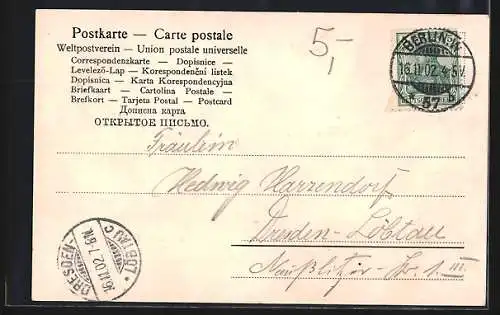 Postkarte — Carte postale
Weltpostverein — Union postale universelle
Correspondenzkarte — Dopisnice —
Levelező-Lap — Korespondenční lístek
Dopisnica — Karta Korespondencyjna
Briefkaart — Cartolina Postale —
Brefkort — Tarjeta Postal — Postcard
Дописна карта
ОТКРЫТОЕ ПИСЬМО.
5,-
BERLIN.W.
16.11.02. 4-5N.
57 b
Fräulein
Hedwig Harzendorf
Dresden-Löbtau
Naußlitzer-Str. 1. III.
DRESDEN-
16.11.02. 7-8N.
LÖBTAU C